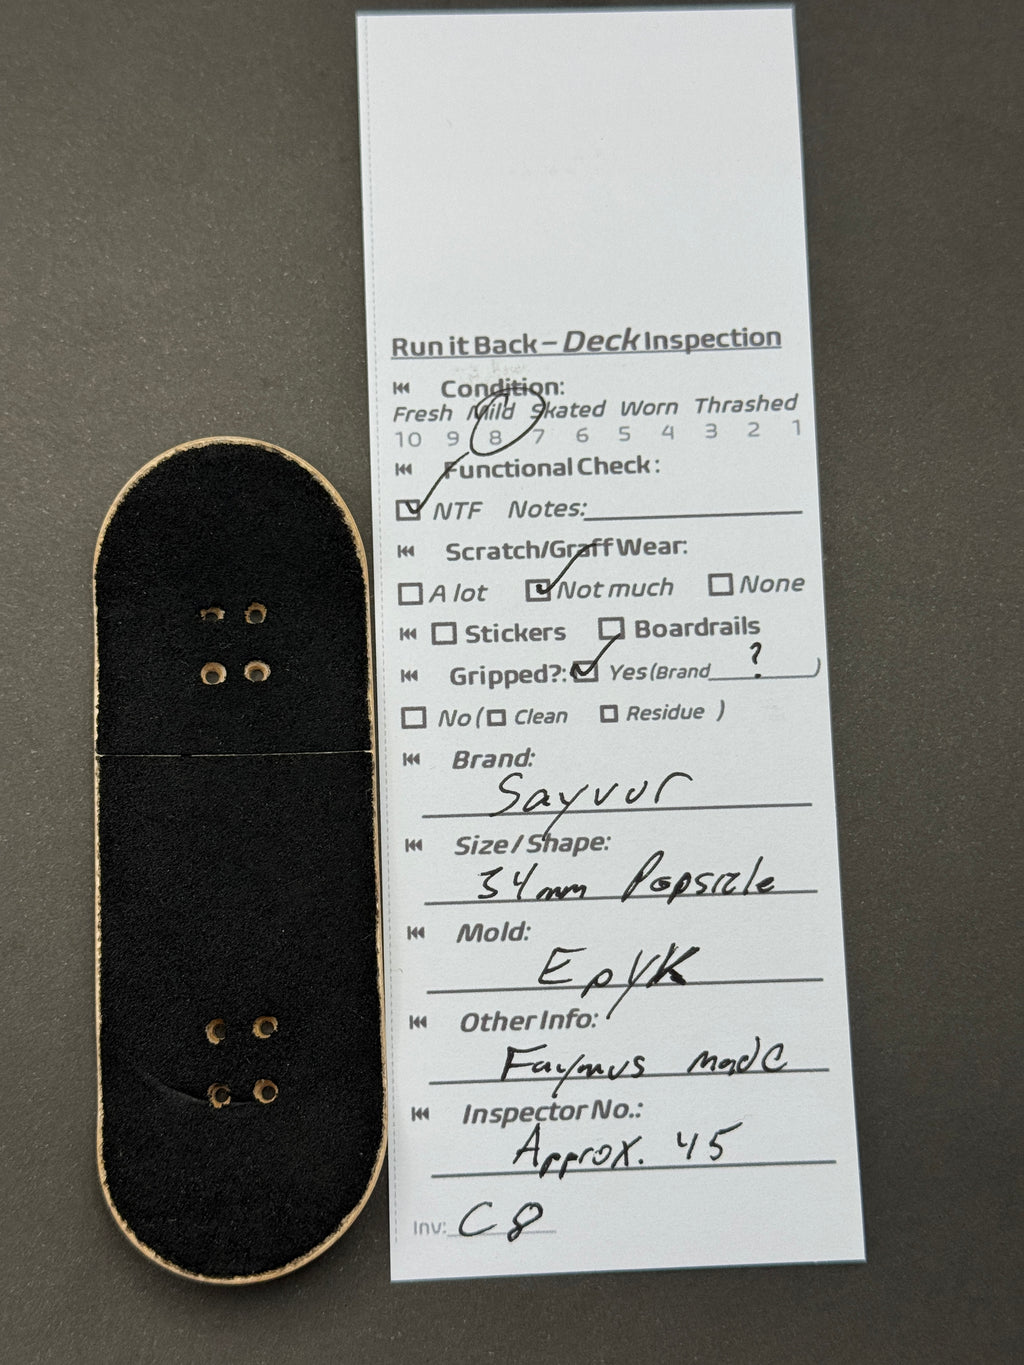 Run it Back – Deck Inspection
Condition:
Fresh Mild Skated Worn Thrashed
10 9 8 7 6 5 4 3 2 1
Functional Check:
NTF Notes:
Scratch/Graff Wear:
A lot Not much None
Stickers Boardrails
Gripped?: Yes (Brand ? )
No ( Clean Residue )
Brand:
Sayvur
Size/Shape:
34mm Popsicle
Mold:
EpyK
Other Info:
Faymus made
Inspector No.:
Approx. 45
Inv: C8